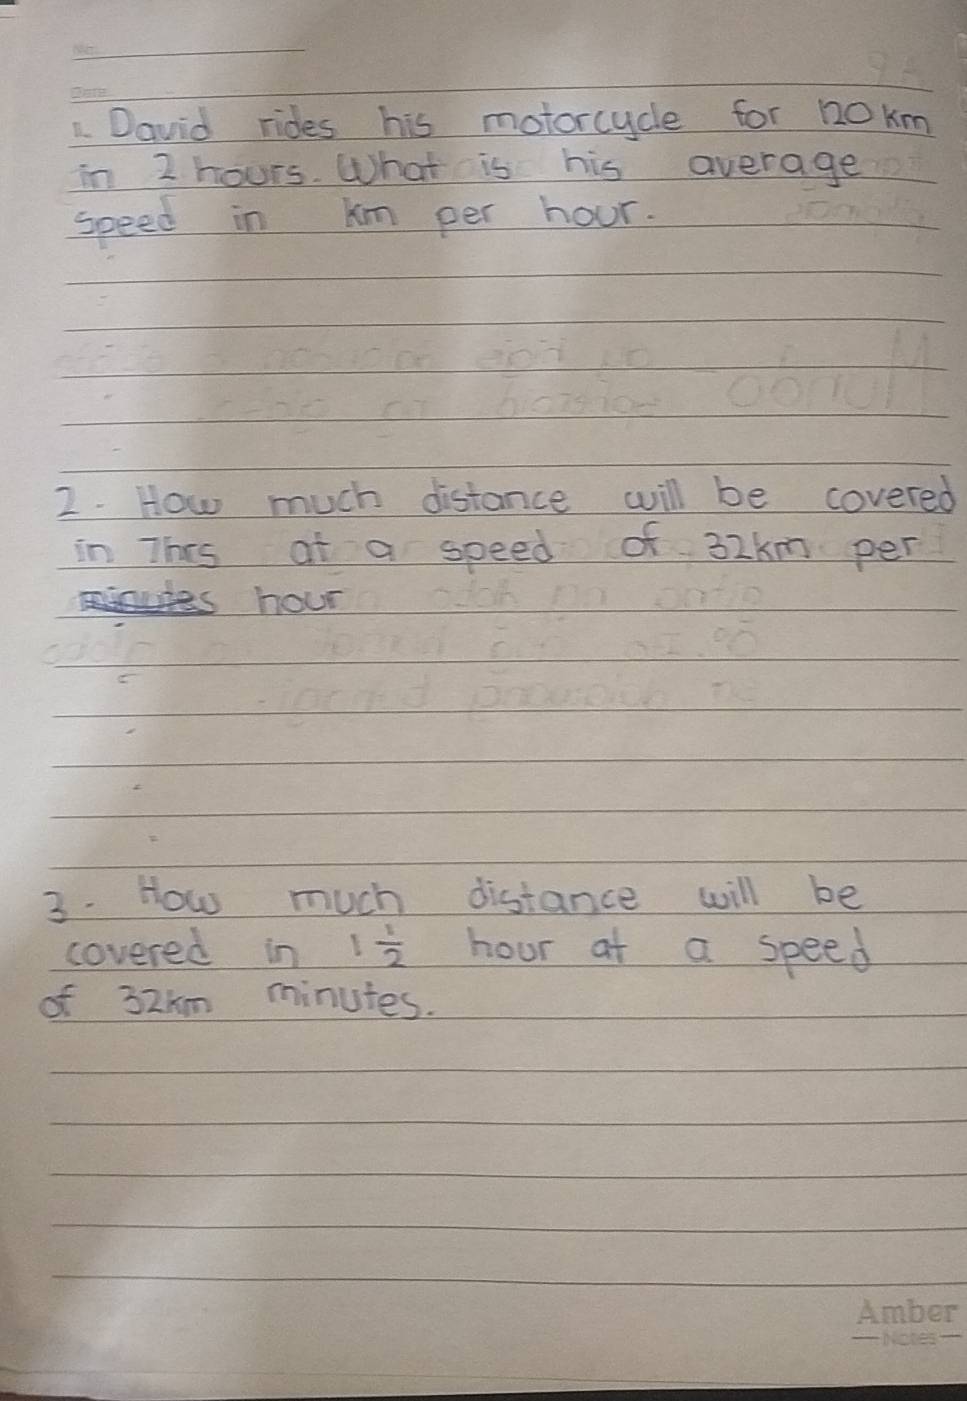 1. David rides his motorcycle for 120 km
in 2 hours. What is his average
speed in km per hour.
2. How much distance will be covered
in 7hrs at a speed of 32km per
hour
3. How much distance will be
covered in 1 1/2 hour at a speed
of 32km minutes.
Amber
Notes